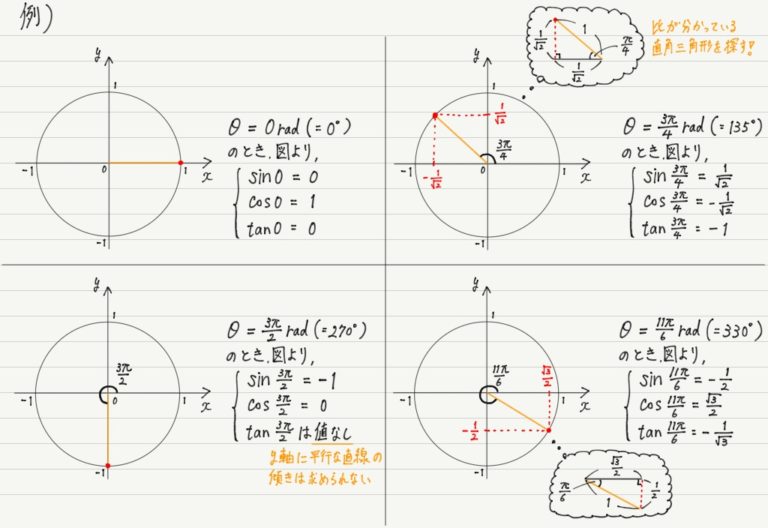 例)
y
1
-1
0
1
x
-1
θ = 0 rad (= 0°)
のとき, 図より,
sin 0 = 0
cos 0 = 1
tan 0 = 0
1/√2
1
π/4
1/√2
比が分かっている
直角三角形を探す!
y
1
1/√2
3π/4
-1
-1/√2
0
1
x
-1
θ = 3π/4 rad (= 135°)
のとき, 図より,
sin 3π/4 = 1/√2
cos 3π/4 = -1/√2
tan 3π/4 = -1
y
1
3π/2
-1
0
1
x
-1
θ = 3π/2 rad (= 270°)
のとき, 図より,
sin 3π/2 = -1
cos 3π/2 = 0
tan 3π/2 は値なし
y軸に平行な直線の
傾きは求められない
y
1
11π/6
√3/2
-1
0
1
x
-1/2
-1
θ = 11π/6 rad (= 330°)
のとき, 図より,
sin 11π/6 = -1/2
cos 11π/6 = √3/2
tan 11π/6 = -1/√3
√3/2
π/6
1/2
1